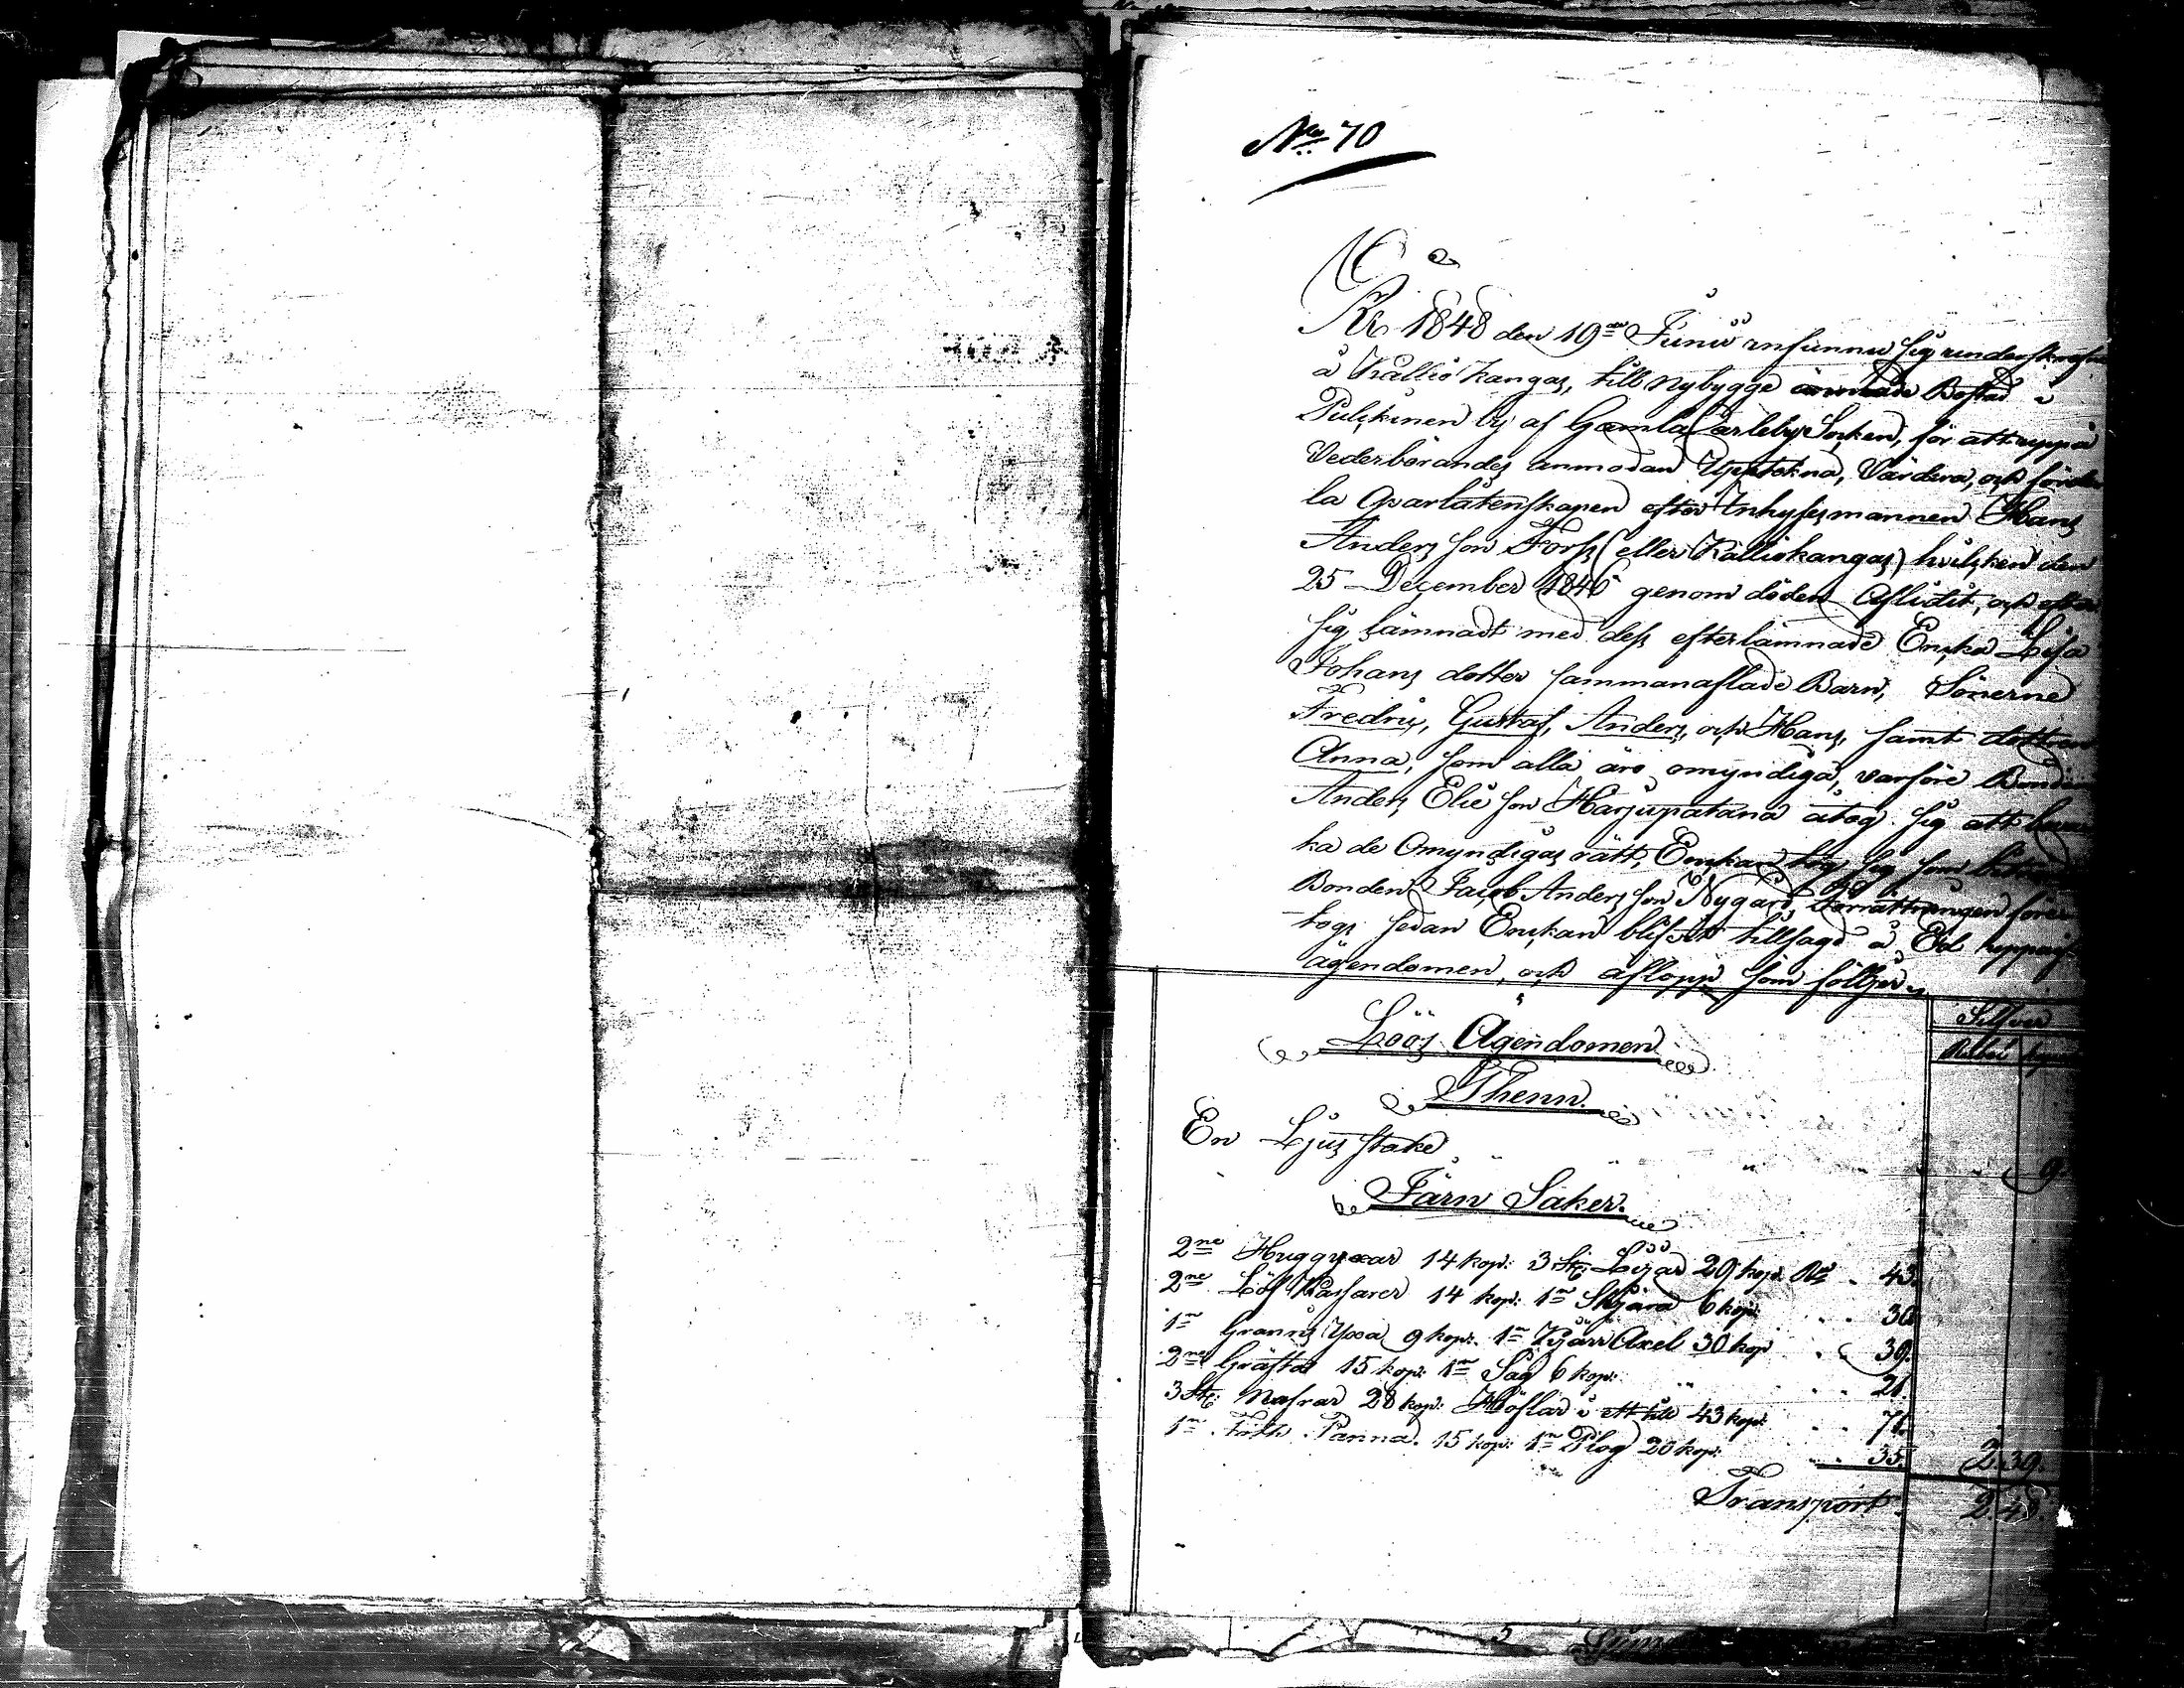 No 70
År 1848 den 19de Junii infunno sig
å Kallio kangas, till Nybygge ämnade Bostad i
Pulckinen by af Gamla Carleby Socken, för att uppå
Vederbörandes anmodan Uptekna, Värdera, och
la Qvarlåtenskapen efter Inhysesmannen Hans
Anders son Forss (eller Kalliokangas) hvilcken den
25 December 1846 genom döden Aflidit, och efter
sig lämnadt med dess efterlämnade Encka Lisa
Johans dotter sammanaflade Barn, Sönerne
Fredric, Gustaf, Anders, och Hans, samt dottren
Anna, som alla äro omyndiga, varföre Bonden
Anders Elie son Harjupatana åtog sig att
ka de Omyndigas rätt, Enckan tog sig som
Bonden Jacob Anders son Nygård, Förrättningen före
togs sedan Enckan blifvit tillsagd å Ed uppgif
ägendomen, och aflopp som följer
Silfver
Rubel
Löös Ägendomen
Thenn.
En Ljus stake 9.
Järn Saker.
2ne Huggyxar 14 kop: 3 St: Lijar 29 kop. 43.
2ne Löf Kassarer 14 kop: 1n Skjära 6 kop: 30
1n Granris Yxa 9 kop: 1n Kjärr Axel 30 kop 39.
2ne Gräftor 15 kop: 1n Såg 6 kop: 21.
3 St: Nafrar 28 kop: Höflar i ett till 43 kop: 71.
1n Panna 15 kop: 1n Plog 20 kop: 35. 2.39.
Transport 2.48.